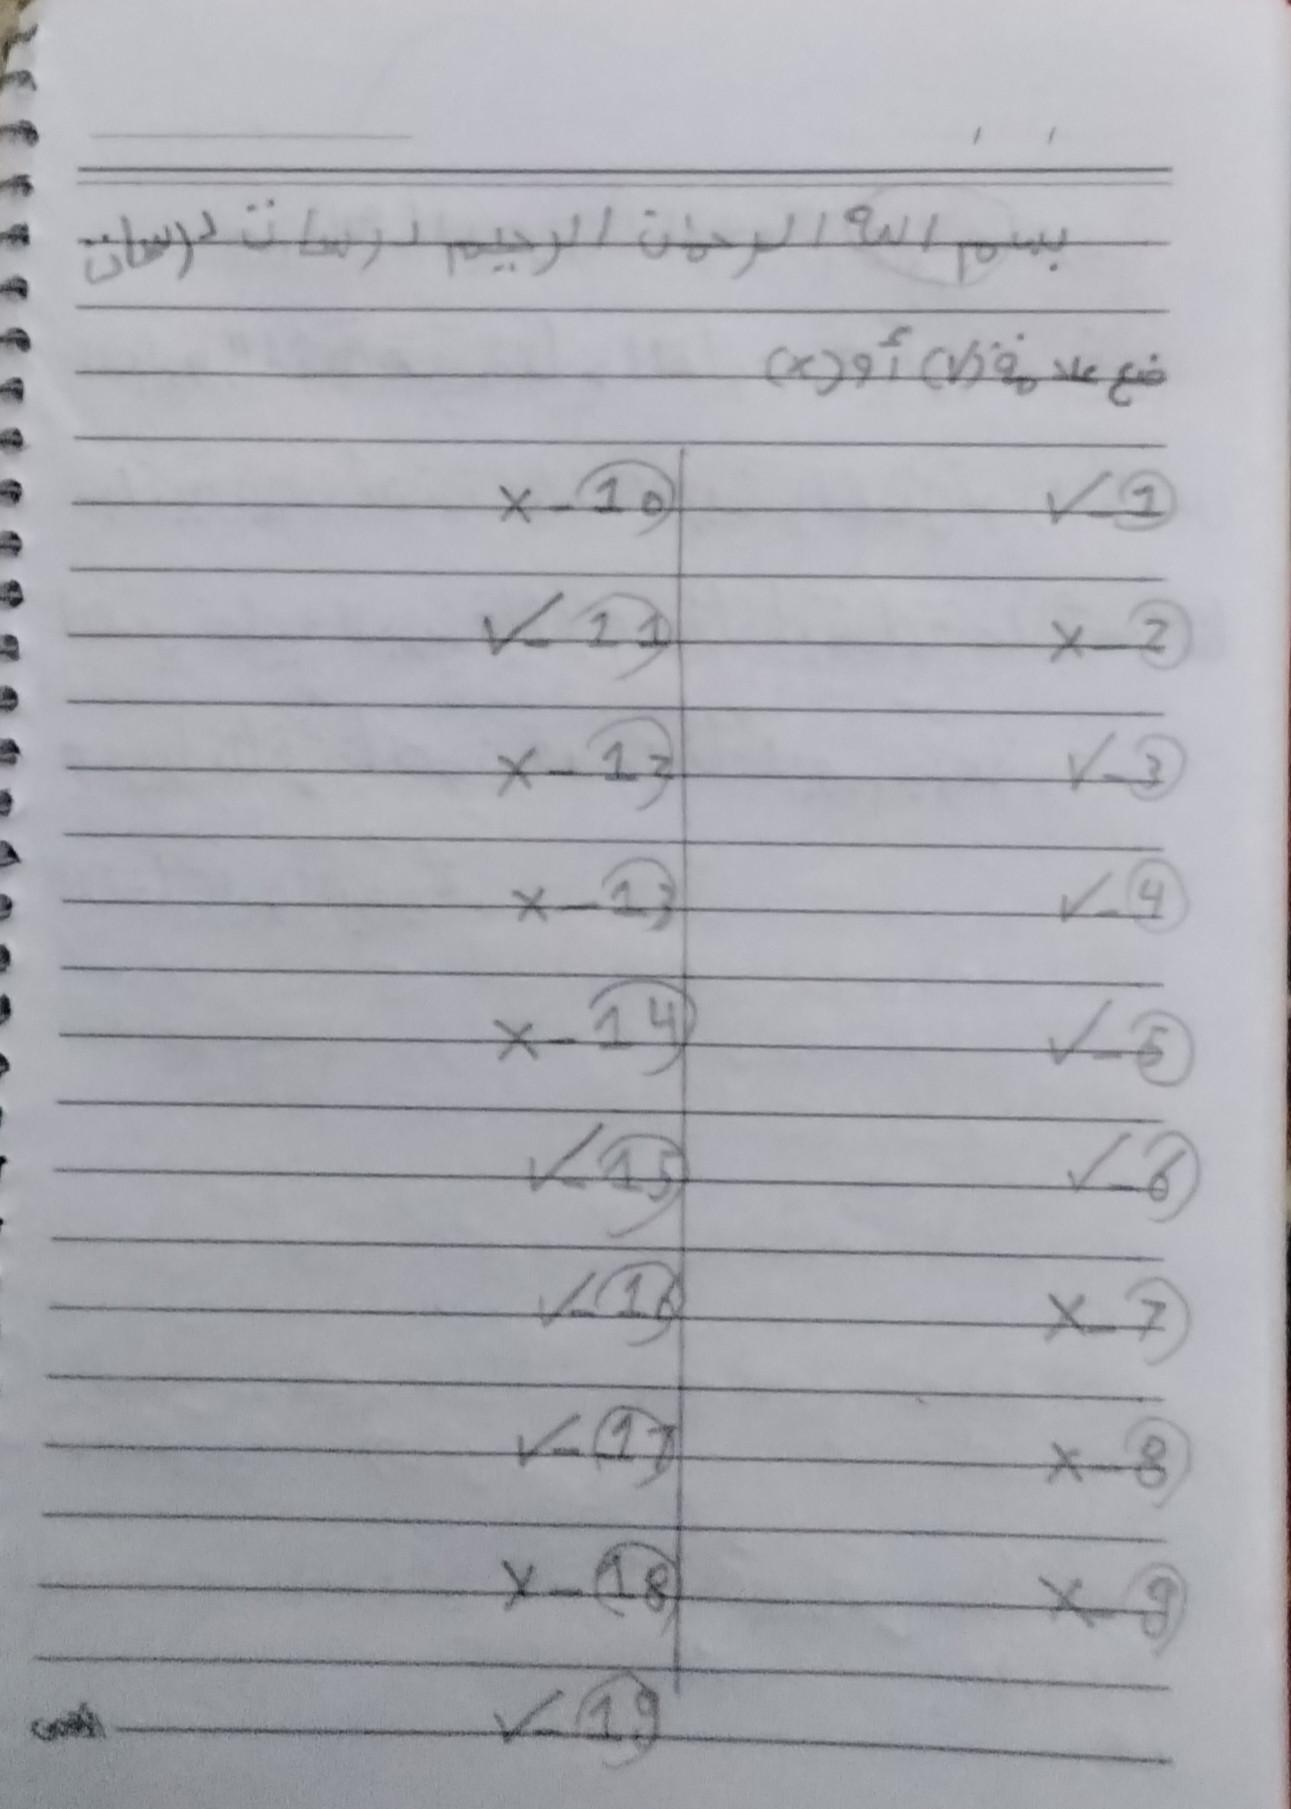 بسم الله الرحمن الرحيم
ضع علامة (√) أو (x)
1- ✓
2- x
3- ✓
4- ✓
5- ✓
6- ✓
7- x
8- x
9- x
10- x
11- ✓
12- x
13- x
14- x
15- ✓
16- ✓
17- ✓
18- x
19- ✓